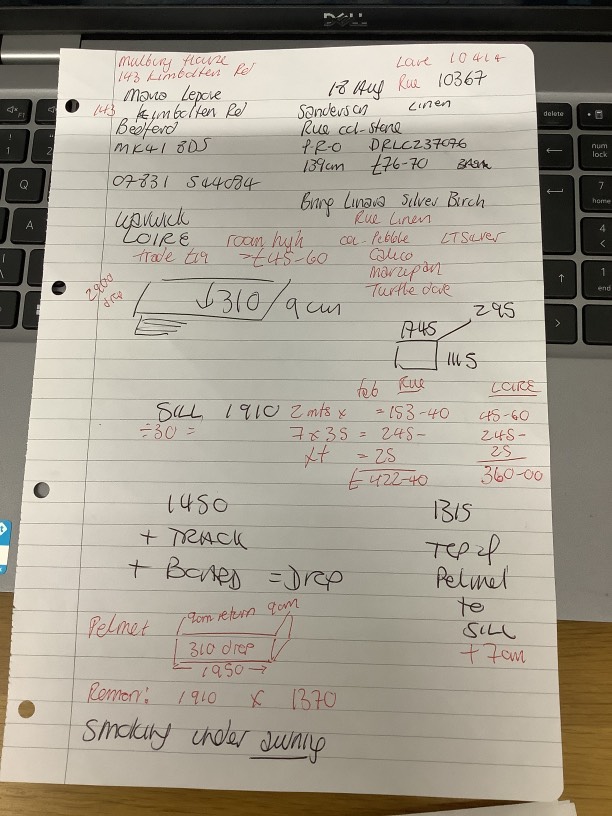 DELL
Mulbury House
143 Kimbolton Rd
Loire 10414
18 Aug Rue 10367
Maria Lepore
143 Kimbolton Rd
Bedford
MK41 8DS
07831 544084
Sanderson Linen
Rue col-stone
P-R-O DRLC237076
139cm £76-70
Bring Linara Silver Birch
Rue Linen
Warwick
LOIRE roman high col-Pebble LT Silver
trade £19 = £45-60 Calico
Marzipan
Turtle dove
2900
drop
↓310 9cm
295
1745
1145
fab Rue LOIRE
SILL 1910 2mts x =153-40 45-60
÷30 = 7x35 = 245- 245-
= 25 25
£422-40 360-00
1450
+ TRACK
+ BOARD = Drop
1315
TOP of
Pelmet
to
SILL
+7cm
Pelmet
9cm return 9cm
310 drop
← 1950 →
Roman: 1910 x 1370
Smoking under awning
delete
num
lock
7
home
4
1
end
Q
A